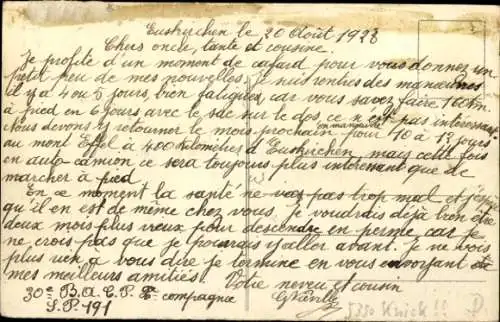 Euskirchen le 20 Août 1928
Chers oncle, tante et cousine.
Je profite d'un moment de cafard pour vous donner un
petit peu de mes nouvelles. Je suis rentrés des manœuvres
il y a 4 ou 5 jours, bien fatigués, car vous savez faire 160 km
à pied en 6 jours avec le sac sur le dos, ce n'est pas intéressant.
Nous devons y retourner le mois prochain pour 10 à 15 jours
au mont Eiffel à 400 kilomètres d'Euskirchen mais cette fois
en auto-camion ce sera toujours plus intéressant que de
marcher à pied.
En ce moment la santé ne vas pas trop mal et
qu'il en est de même chez vous. Je voudrais déjà bien être
deux mois plus vieux pour descendre en perme, car je
ne crois pas que je pourrais y aller avant. Je ne vois
plus rien à vous dire je termine en vous envoyant
mes meilleurs amitiés. Votre neveu et cousin
30e B.A.C.P. 2e compagnie
S.P. 191